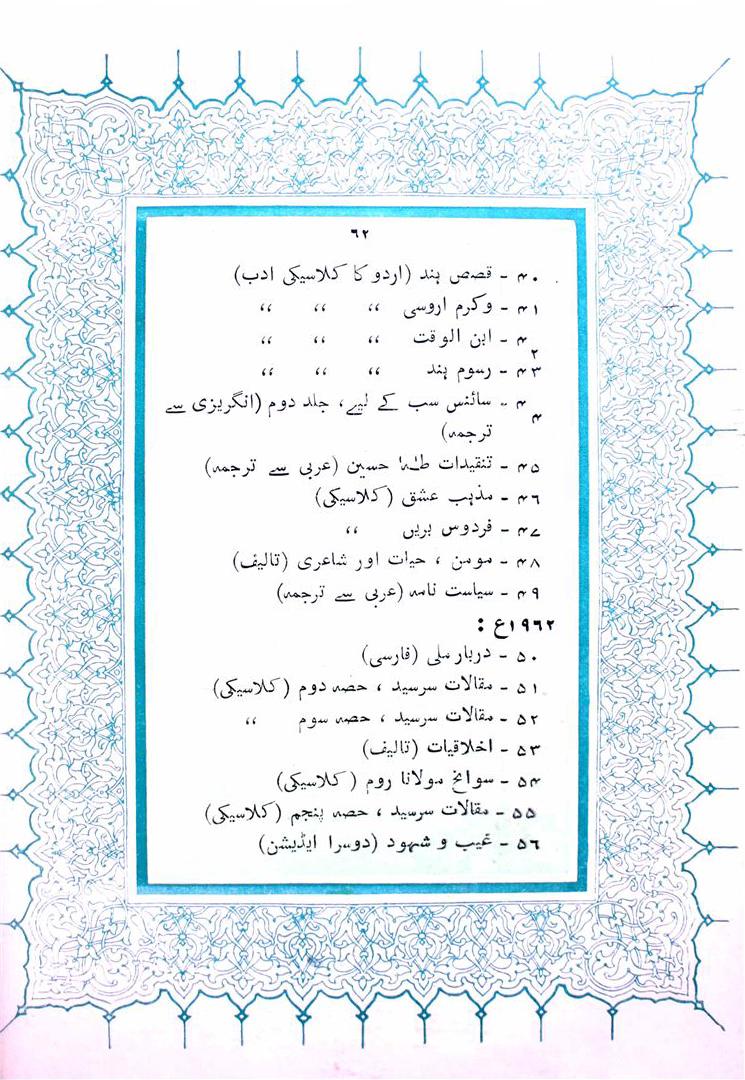 ٦٢
۴۰ - قصص ہند (اردو کا کلاسیکی ادب)
۴۱ - وکرم اروسی ،، ،، ،،
۴۲ - ابن الوقت ،، ،، ،،
۴۳ - رسوم ہند ،، ،، ،،
۴۴ - سائنس سب کے لیے، جلد دوم (انگریزی سے
ترجمہ)
۴۵ - تنقیدات طہٰ حسین (عربی سے ترجمہ)
۴۶ - مذہب عشق (کلاسیکی)
۴۷ - فردوس بریں ،،
۴۸ - مومن ، حیات اور شاعری (تالیف)
۴۹ - سیاست نامہ (عربی سے ترجمہ)
۱۹۶۲ع :
۵۰ - دربار ملی (فارسی)
۵۱ - مقالات سرسید ، حصہ دوم (کلاسیکی)
۵۲ - مقالات سرسید ، حصہ سوم ،،
۵۳ - اخلاقیات (تالیف)
۵۴ - سوانح مولانا روم (کلاسیکی)
۵۵ - مقالات سرسید ، حصہ پنجم (کلاسیکی)
۵۶ - غیب و شہود (دوسرا ایڈیشن)